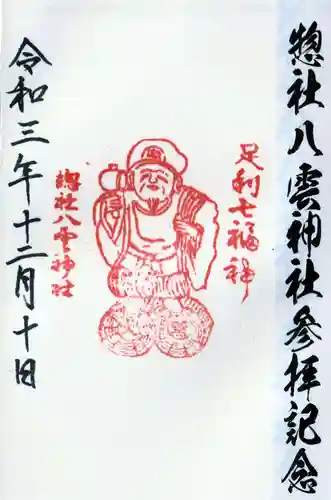 惣社八雲神社参拝記念
足利七福神
総社八雲神社
令和三年十二月十日